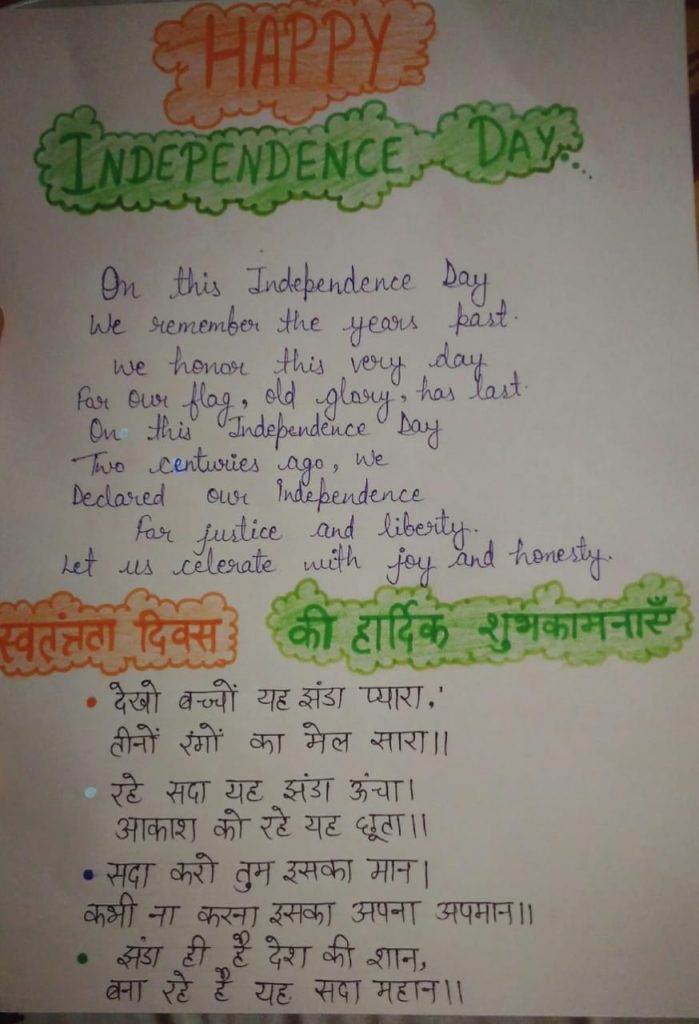 HAPPY
INDEPENDENCE DAY...
On this Independence Day
We remember the years past.
We honor this very day
For our flag, old glory, has last.
On this Independence Day
Two centuries ago, we
Declared our Independence
For justice and liberty.
Let us celerate with joy and honesty.
स्वतंत्रता दिवस की हार्दिक शुभकामनाएँ
• देखो बच्चों यह झंडा प्यारा,'
तीनों रंगों का मेल सारा।।
• रहे सदा यह झंडा ऊंचा।
आकाश को रहे यह छूता।।
• सदा करो तुम इसका मान।
कभी ना करना इसका अपना अपमान।।
• झंडा ही है देश की शान,
बना रहे है यह सदा महान।।